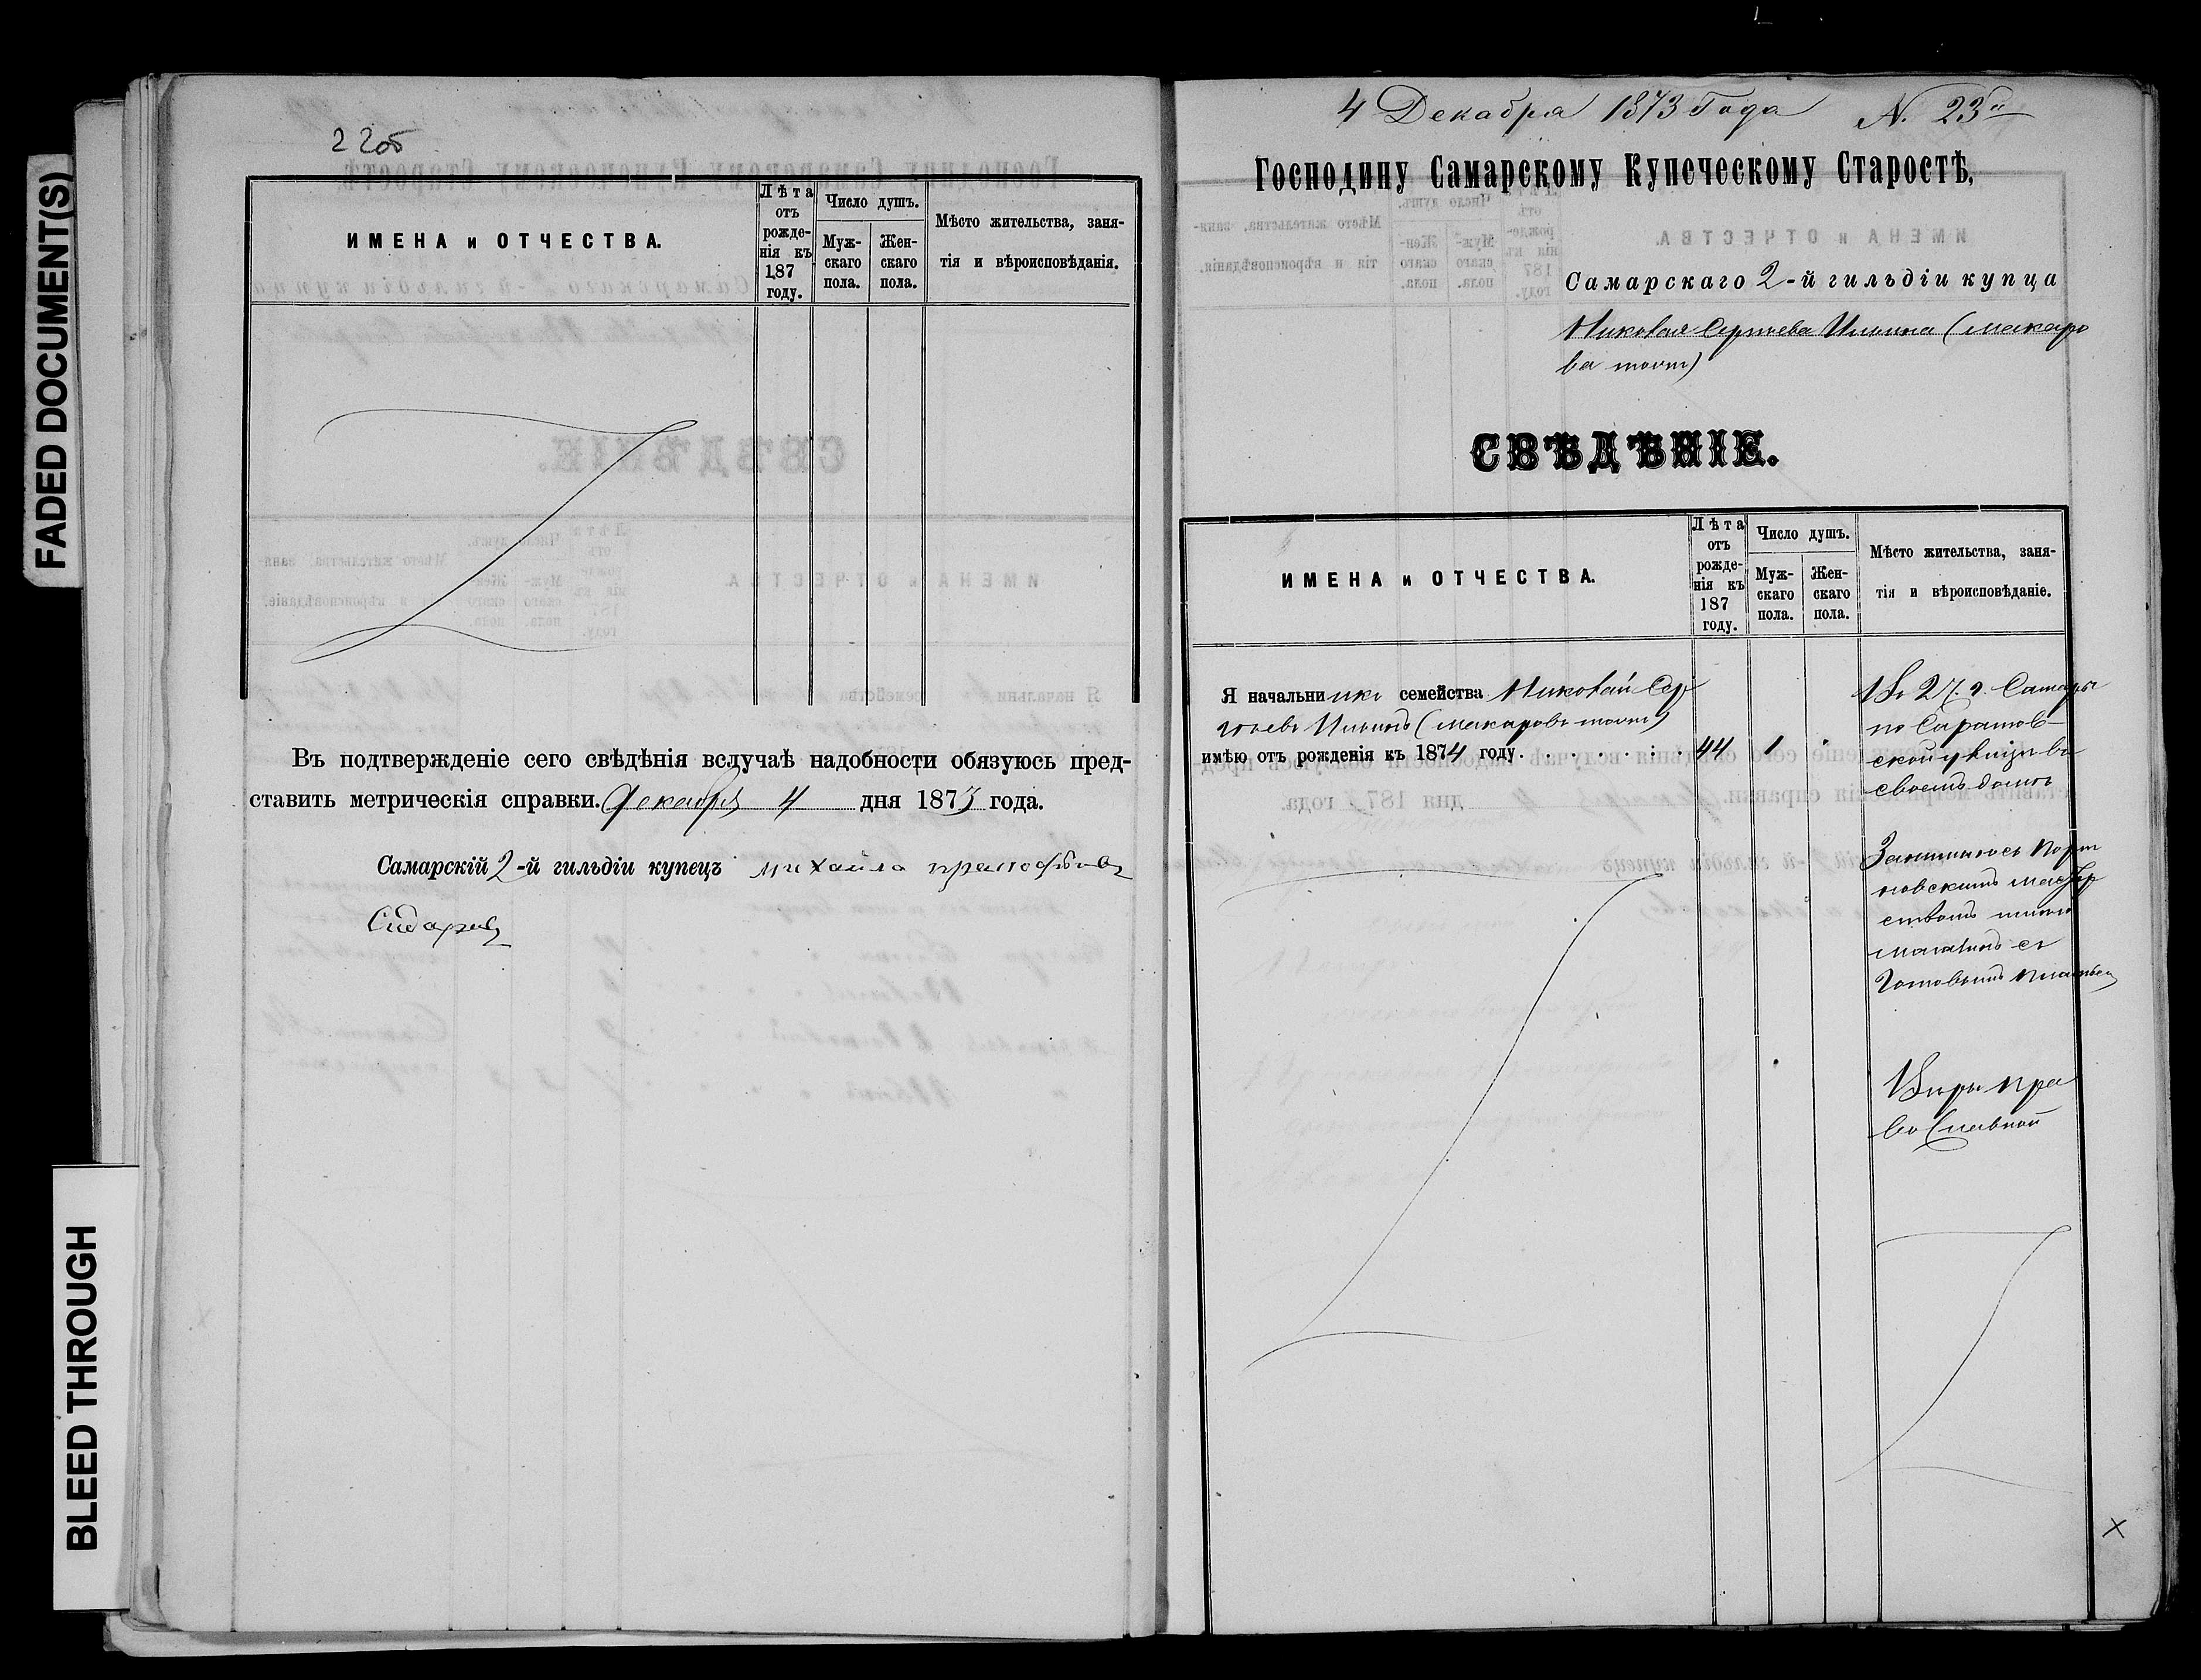 FADED DOCUMENT(S)
BLEED THROUGH
22об
ИМЕНА и ОТЧЕСТВА.
Лѣта отъ рожденія къ 187 году.
Число душъ.
Мужскаго пола.
Женскаго пола.
Мѣсто жительства, заня-
тія и вѣроисповѣданія.
Въ подтвержденіе сего свѣдѣнія вслучаѣ надобности обязуюсь пред-
ставить метрическія справки. Декабря 4 дня 1873 года.
Самарскій 2-й гильдіи купецъ михаила
Сидаровъ
4 Декабря 1873 Года N. 23й
Господину Самарскому Купеческому Старостѣ,
Самарскаго 2-й гильдіи купца
Николая Сергѣева Ильина (макаро
ва тожъ)
СВѢДѢНІЕ.
ИМЕНА и ОТЧЕСТВА.
Лѣта отъ рожденія къ 187 году.
Число душъ.
Мужскаго пола.
Женскаго пола.
Мѣсто жительства, заня-
тія и вѣроисповѣданіе.
Я начальникъ семейства Николай Сер
гѣевъ Ильинъ (макаровъ тожъ)
имѣю отъ рожденія къ 1874 году. 44 1
Въ 2 ч. г. Самары
по Саратов-
ской улицѣ въ
своемъ домѣ
Занимаюсь порт
новскимъ мастер
ствомъ
магазинъ съ
Готовымъ платьемъ
Вѣры пра
вославной